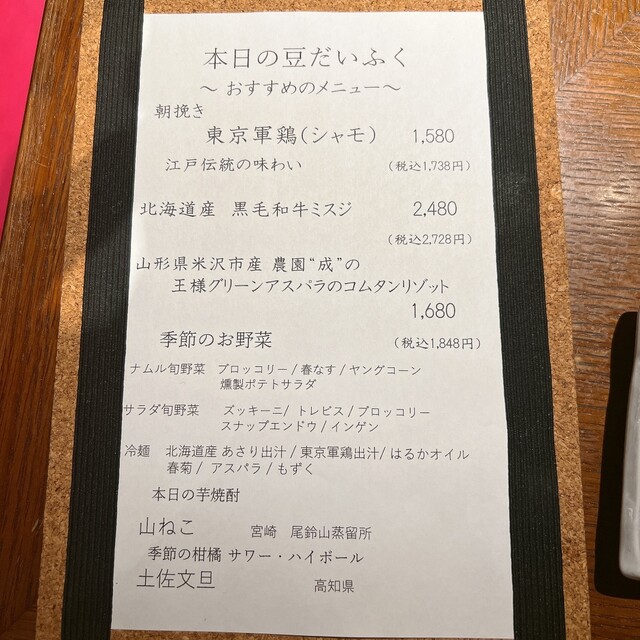 本日の豆だいふく
～ おすすめのメニュー～
朝挽き
東京軍鶏(シャモ) 1,580
江戸伝統の味わい (税込1,738円)
北海道産 黒毛和牛ミスジ 2,480
(税込2,728円)
山形県米沢市産 農園“成”の
王様グリーンアスパラのコムタンリゾット
1,680
季節のお野菜 (税込1,848円)
ナムル旬野菜 ブロッコリー/春なす/ヤングコーン
燻製ポテトサラダ
サラダ旬野菜 ズッキーニ/ トレビス/ブロッコリー
スナップエンドウ/インゲン
冷麺 北海道産 あさり出汁/東京軍鶏出汁/はるかオイル
春菊/ アスパラ/もずく
本日の芋焼酎
山ねこ 宮崎 尾鈴山蒸留所
季節の柑橘 サワー・ハイボール
土佐文旦 高知県